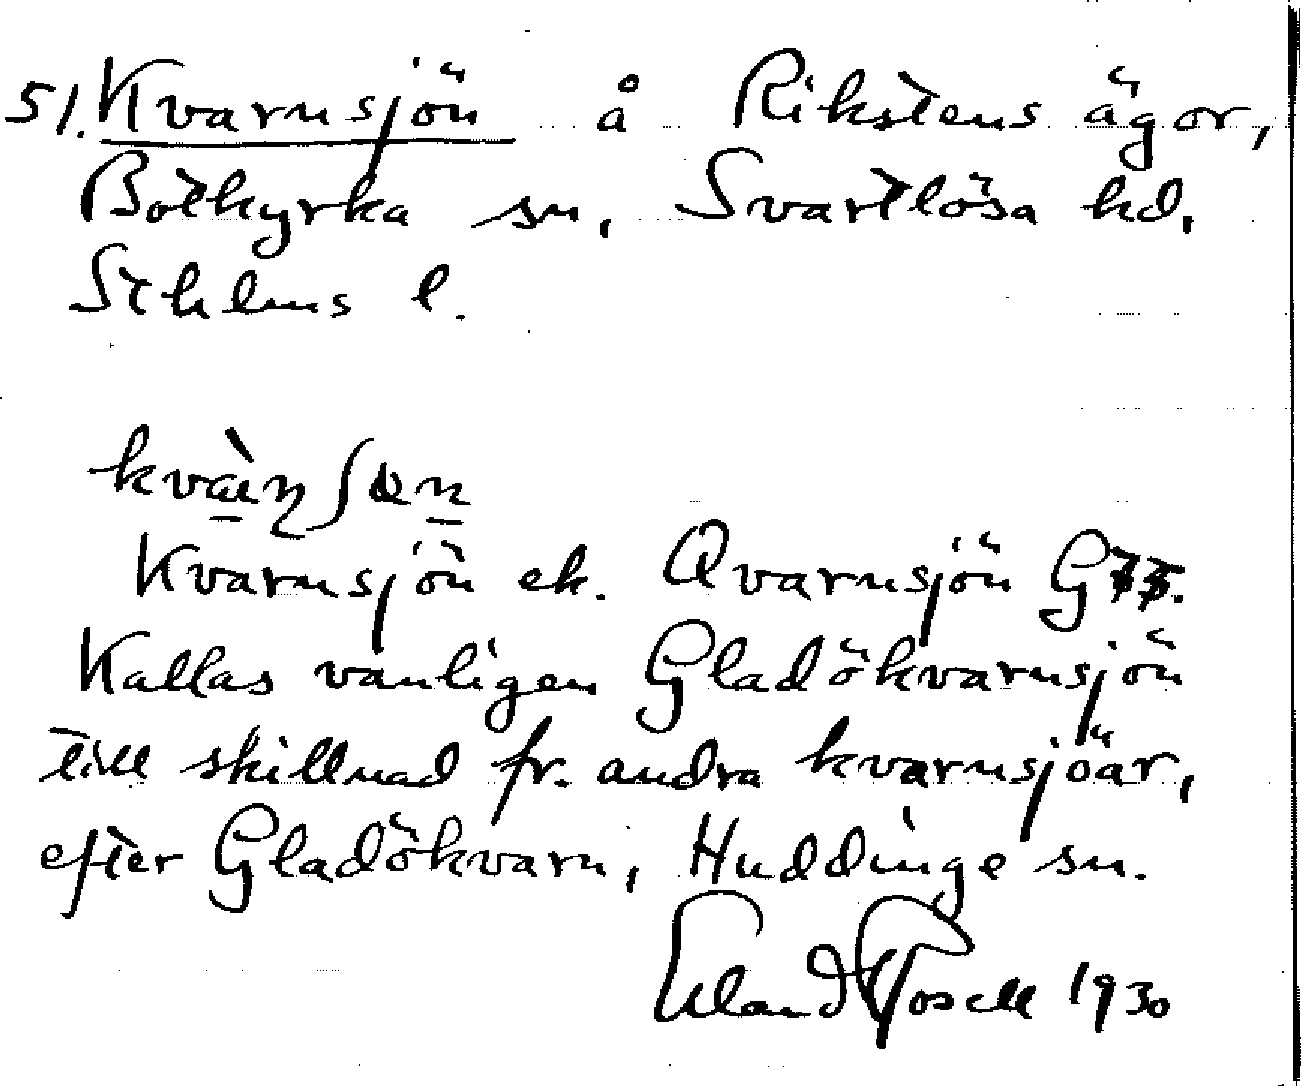 51. Kvarnsjön å Rikstens ägor,
Botkyrka sn, Svartlösa hd,
Sthlms l.
Kvarnsjön ek. Qvarnsjön
Kallas vanligen Gladökvarnsjön
till skillnad fr. andra kvarnsjöar,
efter Gladökvarn, Huddinge sn.
Erland Rosell 1930